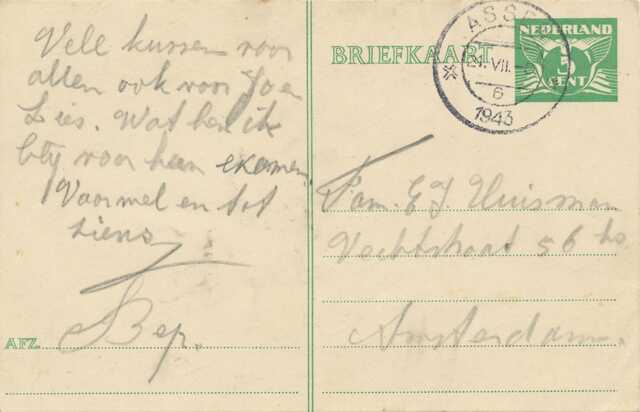 Vele kussen voor
allen ook voor Jo en
Lies. Wat ben ik
bly voor heen examen.
Vaarwel en tot
ziens
Bep.
AFZ.
BRIEFKAART
NEDERLAND
5
CENT
ASSEN
21.VII.
6
1943
Fam. E J. Huisman
Vechtstraat 56 hs
Amsterdam.